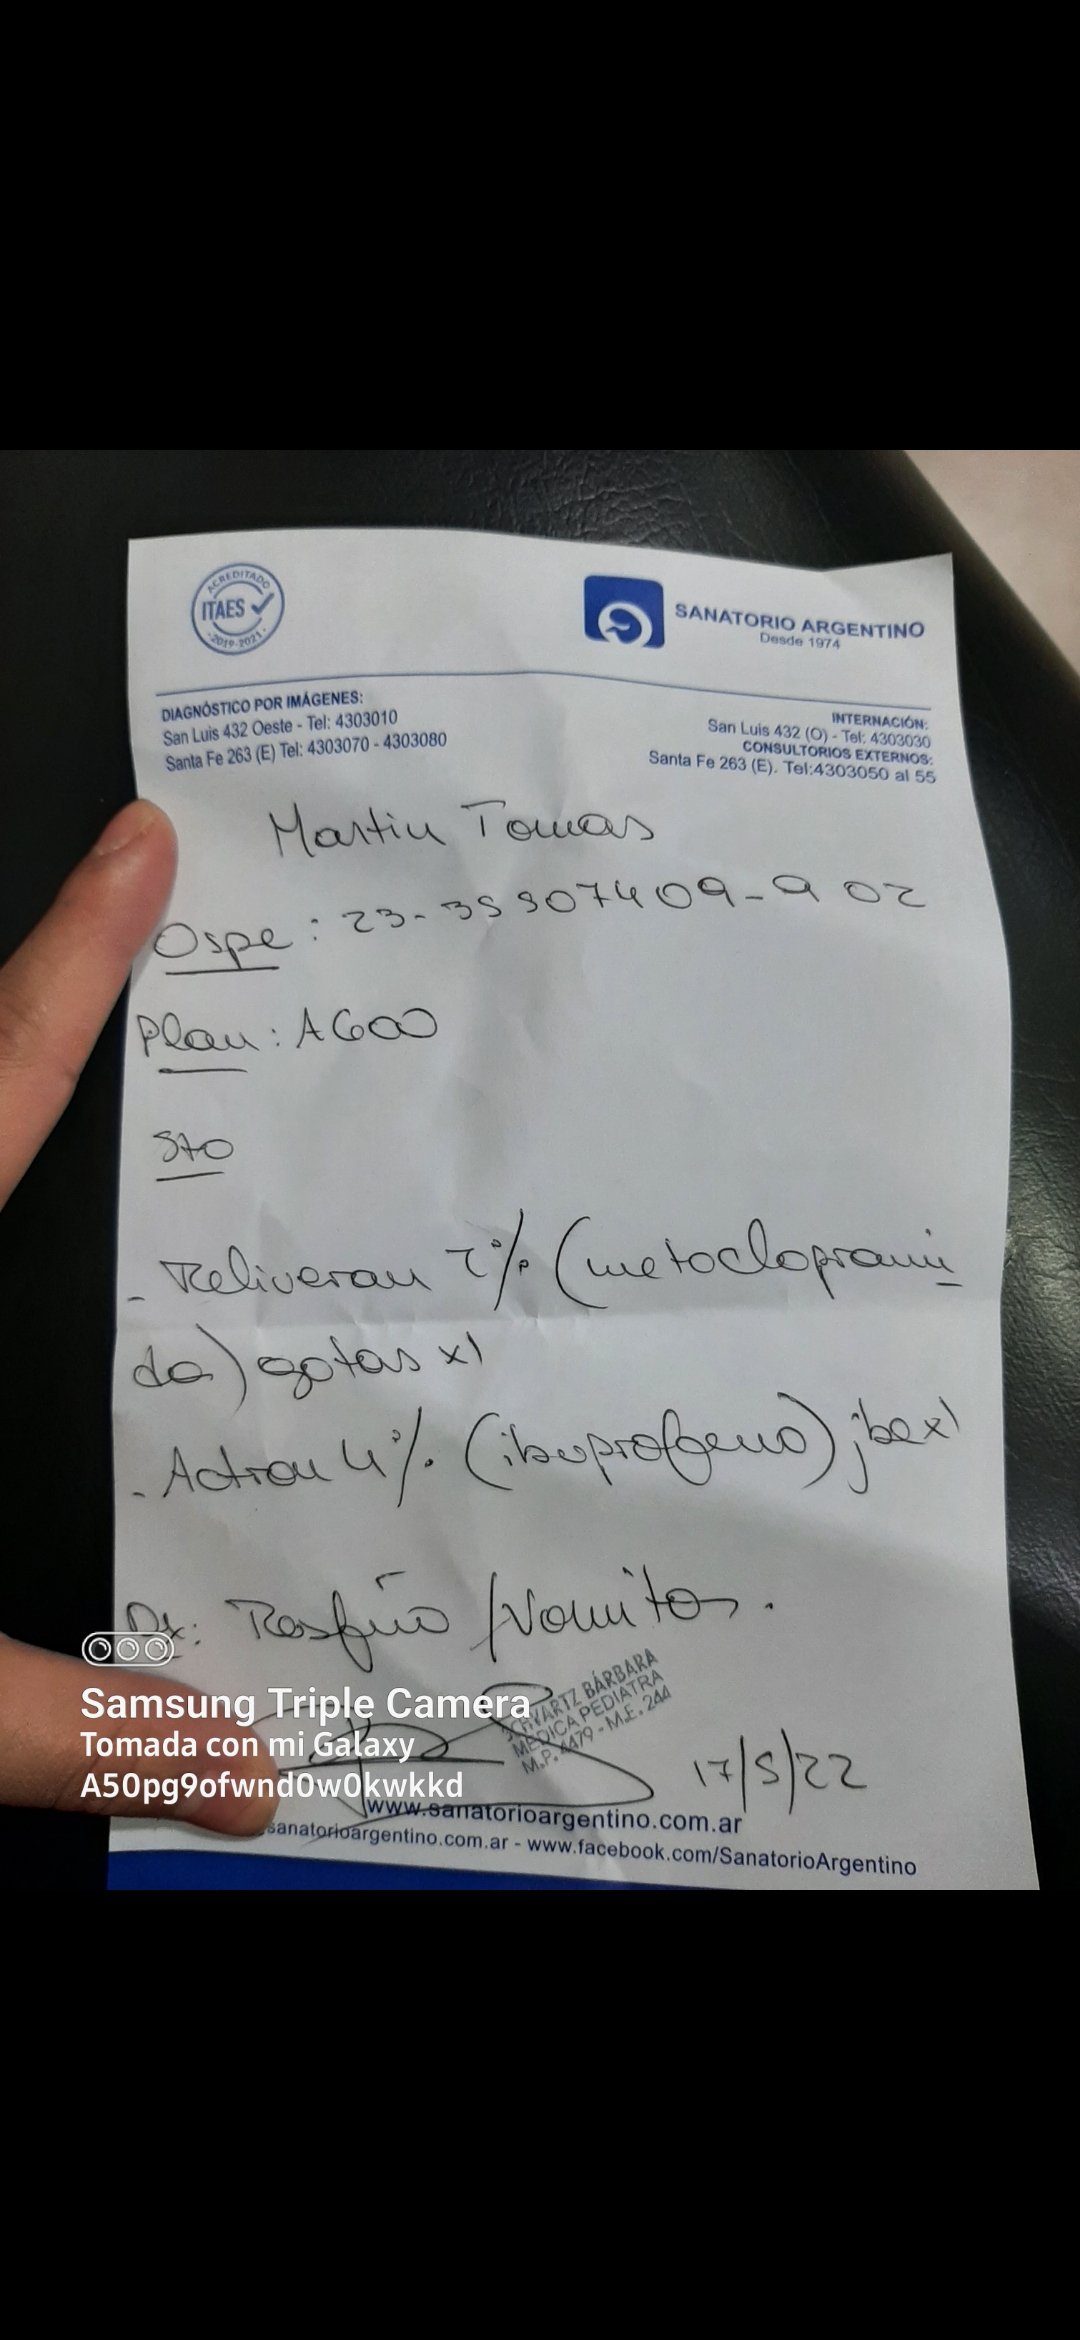 ACREDITADO
ITAES
2019-2021
SANATORIO ARGENTINO
Desde 1974
DIAGNÓSTICO POR IMÁGENES:
San Luis 432 Oeste - Tel: 4303010
Santa Fe 263 (E) Tel: 4303070 - 4303080
INTERNACIÓN:
San Luis 432 (O) - Tel: 4303030
CONSULTORIOS EXTERNOS:
Santa Fe 263 (E). Tel:4303050 al 55
Martin Tomas
Ospe: 23-35907409-9 02
Plan: A600
Sto
- Reliveran 2% (metocloprami
da) gotas x1
- Actron 4% (ibuprofeno) jbe x1
Dx: Resfrío / Vomitos.
SCHVARTZ BÁRBARA
MÉDICA PEDIATRA
M.P. 4479 - M.E. 244
17/5/22
www.sanatorioargentino.com.ar
sanatorioargentino.com.ar - www.facebook.com/SanatorioArgentino
Samsung Triple Camera
Tomada con mi Galaxy
A50pg9ofwnd0w0kwkkd